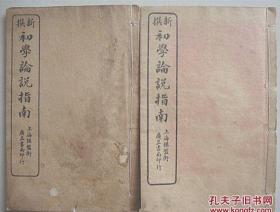 新撰
初學論説指南
上海棋盤街
廣益書局印行
新撰
初學論説指南
上海棋盤街
廣益書局印行